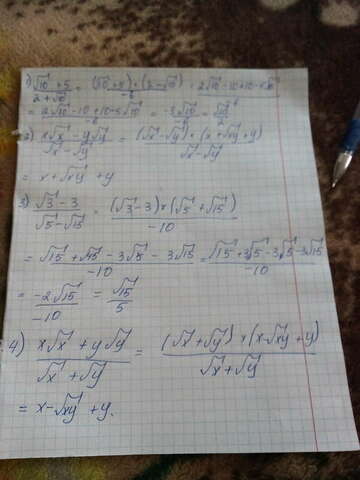 1) (√10 + 5)/(2 + √10) = ((√10 + 5) · (2 - √10))/(-6) = 2√10 - 10 + 10 - 5√10
= (2√10 - 10 + 10 - 5√10)/(-6) = (-3√10)/(-6) = √10/2
2) (x√x - y√y)/(√x - √y) = ((√x - √y) · (x + √xy + y))/(√x - √y)
= x + √xy + y
3) (√3 - 3)/(√5 - √15) = ((√3 - 3) × (√5 + √15))/(-10)
= (√15 + √45 - 3√5 - 3√15)/(-10) = (√15 + 3√5 - 3√5 - 3√15)/(-10)
= (-2√15)/(-10) = √15/5
4) (x√x + y√y)/(√x + √y) = ((√x + √y) × (x - √xy + y))/(√x + √y)
= x - √xy + y.